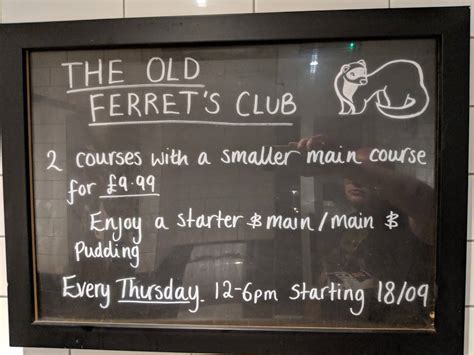 THE OLD
FERRET'S CLUB
2 courses with a smaller main course
for £9.99
Enjoy a starter & main/main &
Pudding
Every Thursday. 12-6pm starting 18/09